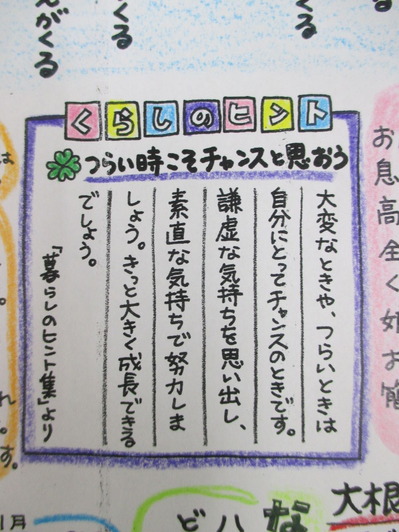 くらしのヒント
つらい時こそチャンスと思おう
大変なときや、つらいときは
自分にとってチャンスのときです。
謙虚な気持ちを思い出し、
素直な気持ちで努力しま
しょう。きっと大きく成長できる
でしょう。
「暮らしのヒント集」より
大根